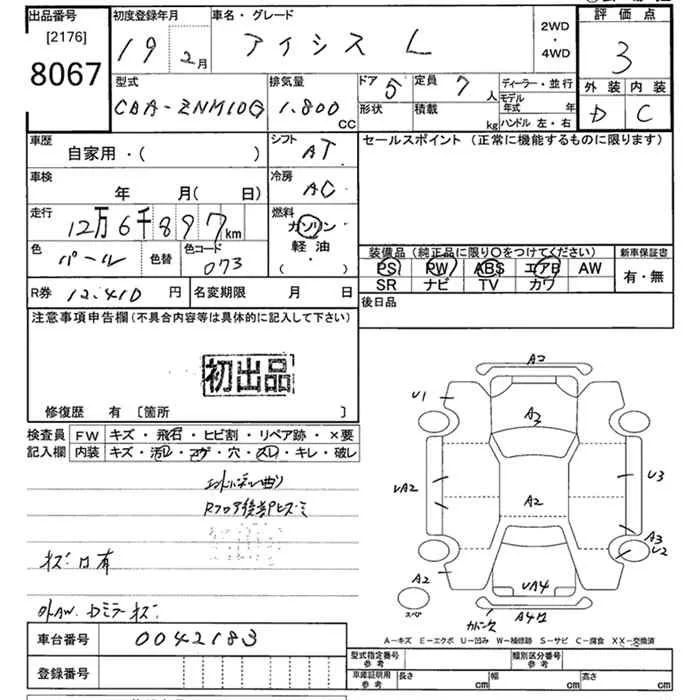 出品番号 初度登録年月 車名・グレード 2WD・4WD 評価点
[2176]
8067
19 2月 アイシス L 3
型式 排気量 ドア 5 定員 7人 ディーラー・並行 外装 内装
CBA-ZNM10G 1.800 CC 形状 積載 kg モデル年式 年 D C
ハンドル 左・右
車歴 シフト セールスポイント(正常に機能するものに限ります)
自家用・( ) AT
車検 冷房
年 月( 日) AC
走行 燃料
12万6千897km ガソリン
色 パール 色替 色コード 073 軽油・( )
装備品(純正品に限り○をつけてください) 新車保証書
PS PW ABS エアB AW 有・無
SR ナビ TV カワ
R券 12.410円 名変期限 月 日
後日品
注意事項申告欄(不具合内容等は具体的に記入して下さい)
初出品
修復歴 有 [箇所 ]
検査員 FW キズ・飛石・ヒビ割・リペア跡・×要
記入欄 内装 キズ・汚レ・コゲ・穴・スレ・キレ・破レ
Rフロア後部ヒズミ
キズ凹有
A2
U1
A3
UA2
U3
A2
A3
U2
A2
UA4
スペア
A4凹
A-キズ E-エクボ U-凹み W-補修跡 S-サビ C-腐食 XX-交換済
車台番号 0042183
登録番号
型式指定番号 参考 類別区分番号 参考
車庫証明用 参考 長さ cm 幅 cm 高さ cm